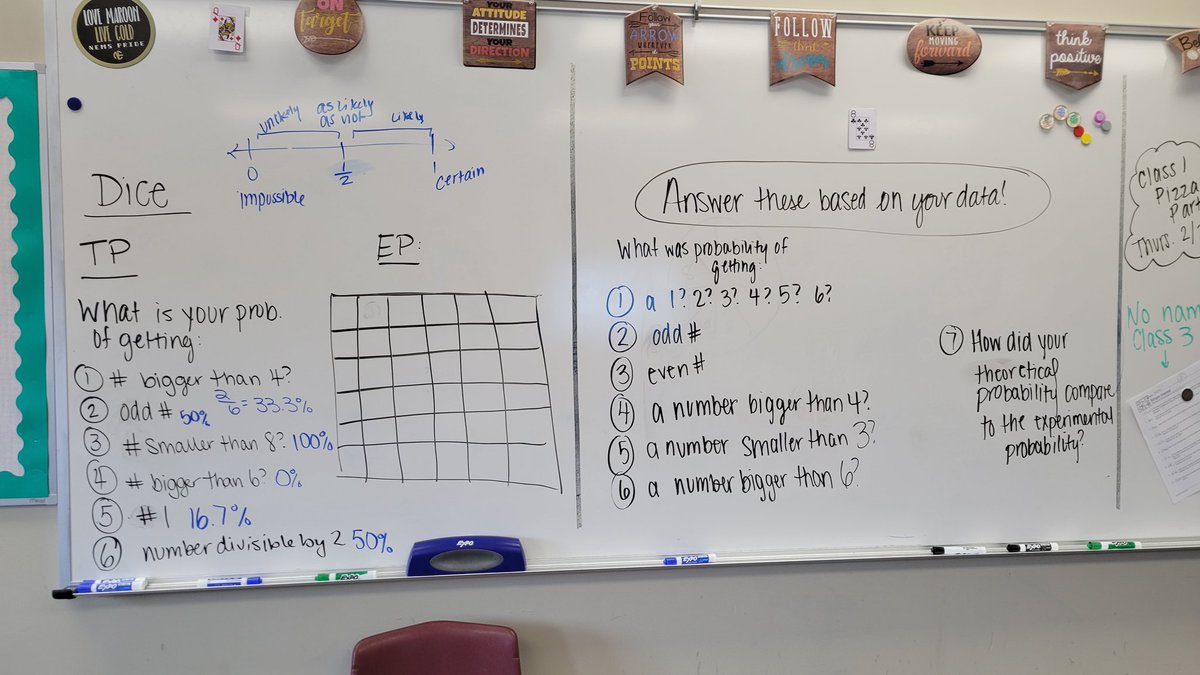 LOVE MAROON
LIVE GOLD
NEMS PRIDE
Q
ON
target
YOUR
ATTITUDE
DETERMINES
YOUR
DIRECTION
Follow
ARROW
WHEREVER
POINTS
FOLLOW
KEEP
MOVING
forward
think
positive
8
8
unlikely
as likely
as not
likely
0
1/2
1
impossible
certain
Dice
TP
EP:
What is your prob.
of getting:
① # bigger than 4?
2/6 = 33.3%
② odd # 50%
③ # smaller than 8? 100%
④ # bigger than 6? 0%
⑤ #1 16.7%
⑥ number divisible by 2 50%
Answer these based on your data!
What was probability of
getting:
① a 1? 2? 3? 4? 5? 6?
② odd #
③ even #
④ a number bigger than 4?
⑤ a number smaller than 3?
⑥ a number bigger than 6?
⑦ How did your
theoretical
probability compare
to the experimental
probability?
Class 1
Pizza
Thurs. 2/
No
Class 3
EXPO